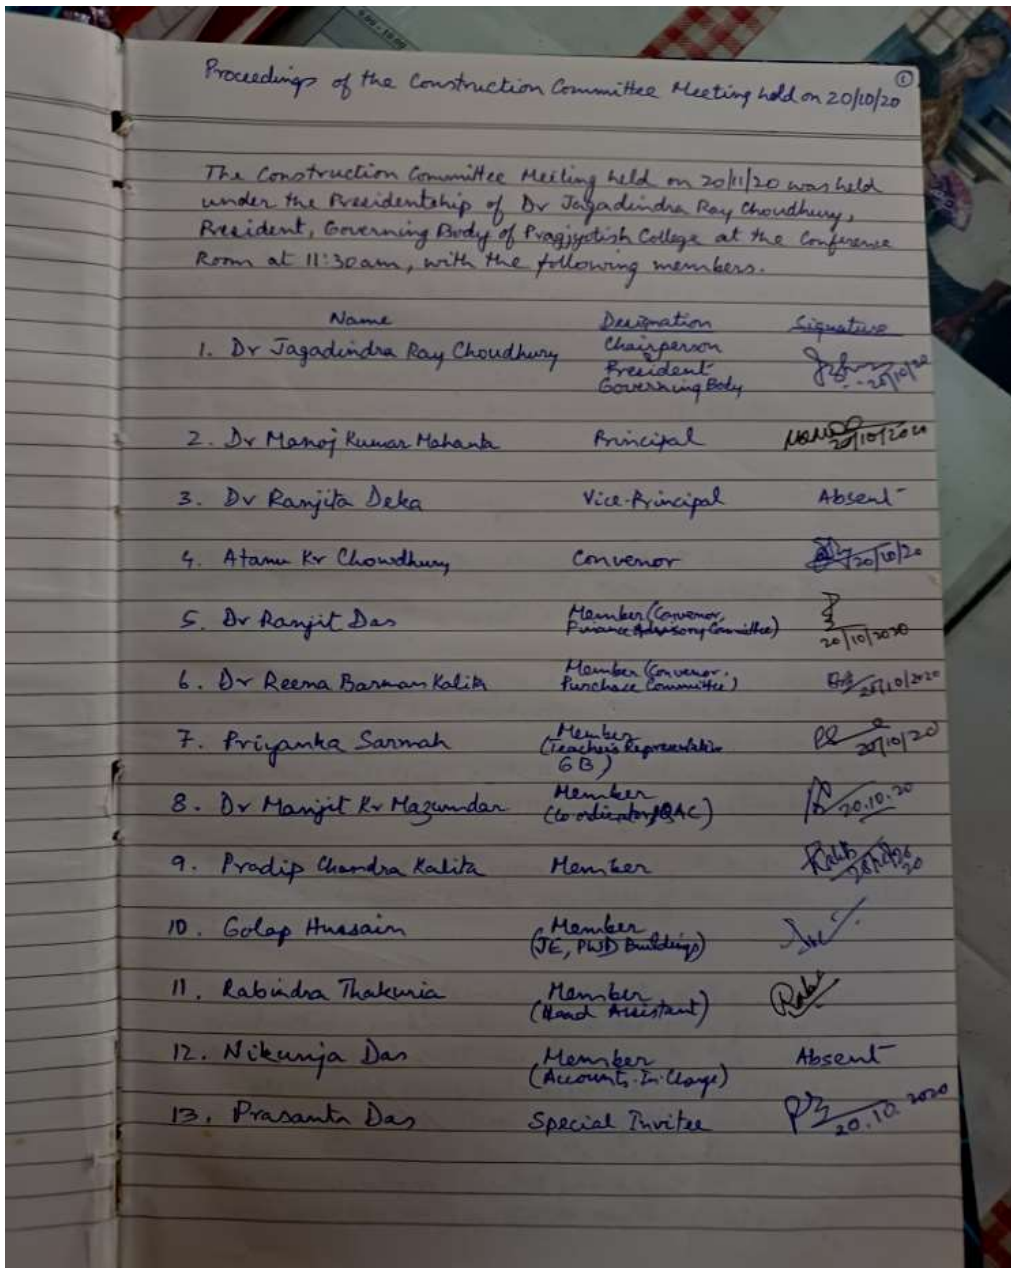 ①
Proceedings of the Construction Committee Meeting held on 20/10/20
The Construction Committee Meeting held on 20/11/20 was held
under the Presidentship of Dr Jagadindra Ray Choudhury,
President, Governing Body of Pragjyotish College at the Conference
Room at 11:30am, with the following members.
Name Designation Signature
1. Dr Jagadindra Ray Choudhury Chairperson
President
Governing Body
20/10/20
2. Dr Manoj Kumar Mahanta Principal 20/10/2020
3. Dr Ranjita Deka Vice-Principal Absent
4. Atanu Kr Chowdhury Convenor 20/10/20
5. Dr Ranjit Das Member (Convenor,
Finance Advisory Committee)
20/10/2020
6. Dr Reema Barman Kalita Member (Convenor,
Purchase Committee) 20/10/2020
7. Priyanka Sarmah Member
(Teachers Representative
GB)
20/10/20
8. Dr Manjit Kr Mazumdar Member
(Co ordinator, IQAC) 20.10.20
9. Pradip Chandra Kalita Member
10. Golap Hussain Member
(JE, PWD Buildings)
11. Rabindra Thakuria Member
(Head Assistant)
12. Nikunja Das Member
(Accounts-In-Charge)
Absent
13. Prasanta Das Special Invitee 20.10.2020